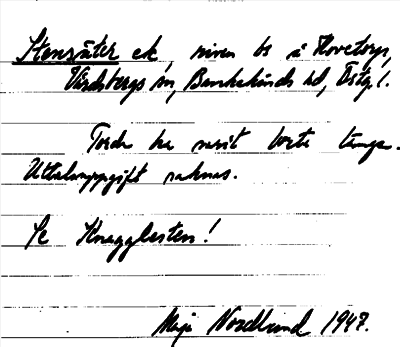 Stensäter ek, niven bs å Hovetorp,
Vårdsbergs sn, Bankekinds hd, Östg.l.
Torde ha varit borte länge.
Uttalsuppgift saknas.
Se Knagglesten!
Maja Nordlund 1947.